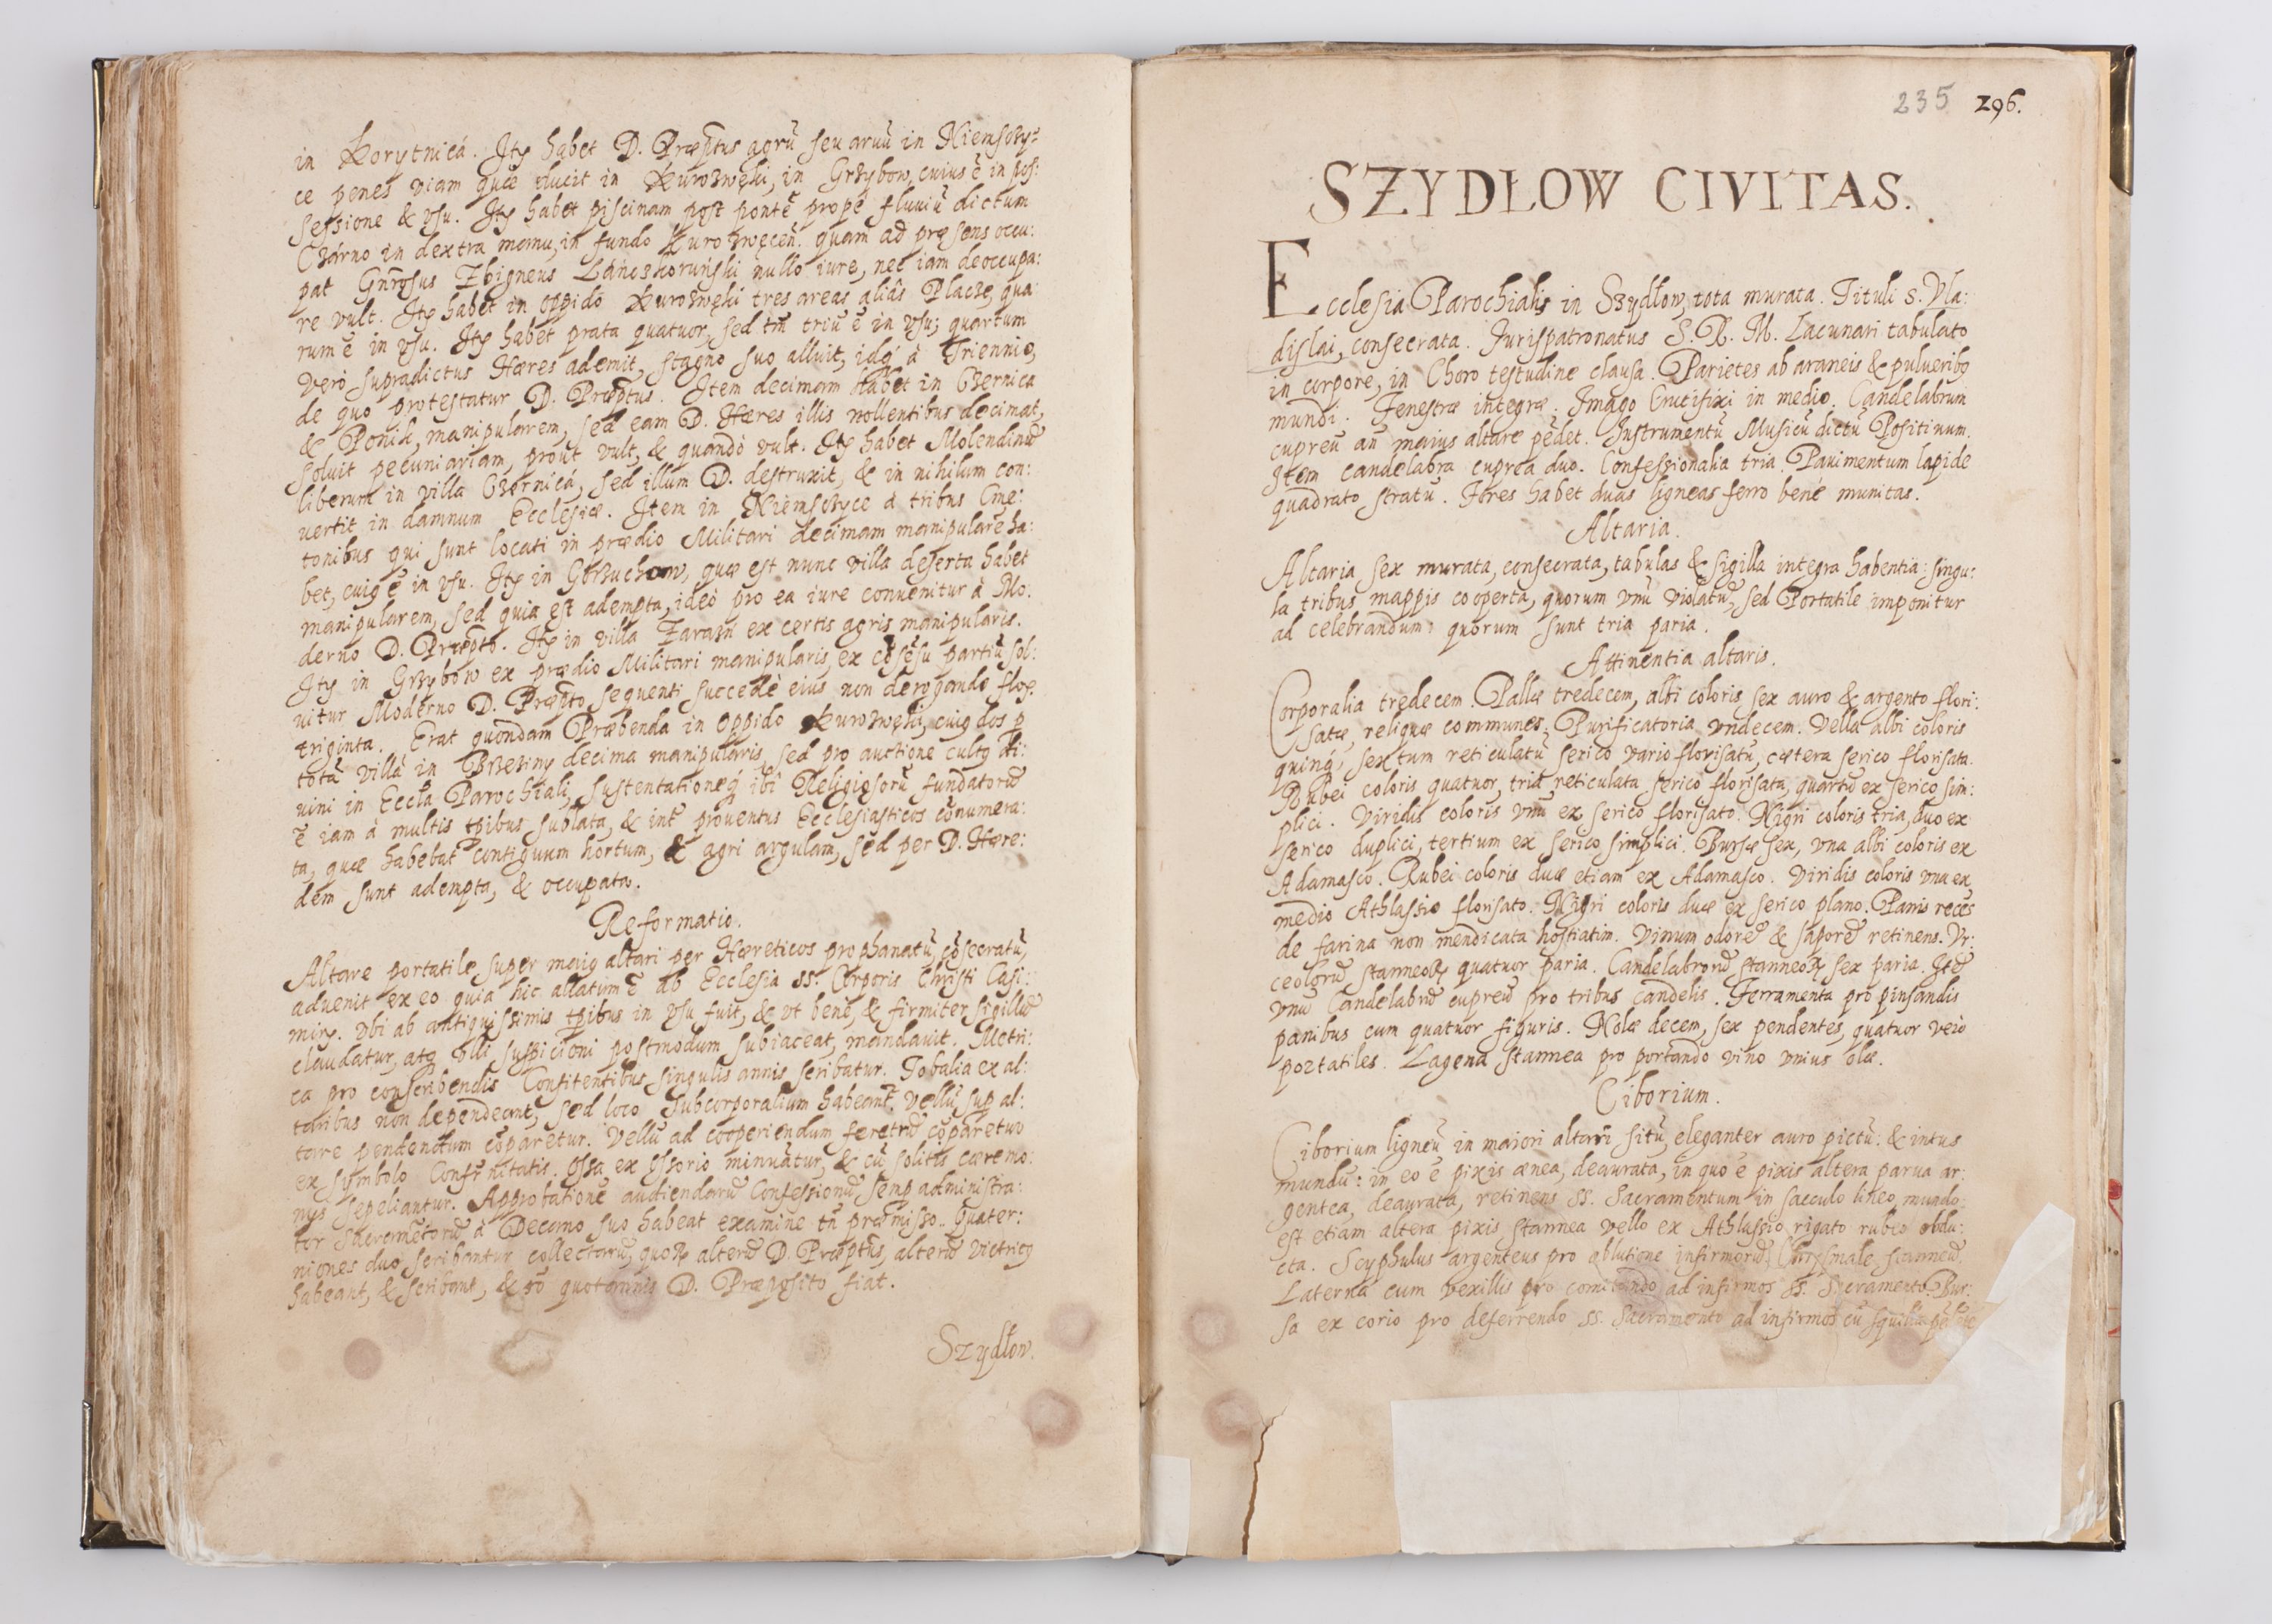 in Korytnicá. Itȩ habet D. Præptus agrū seu aruū in Niemsczy-
ce penes viam quæ ducit in Kurozwęki, in Grzybow, cuius ē in pos:
sessione & vsu. Itȩ habet piscinam post pontē prope fluuiū dictum
Czárno in dextra manu, in fundo Kurozwęceñ. quam ad præsens occu:
pat Gnrosus Zbigneus Lánczkoruński nullo iure, nec iam deoccupa:
re vult. Itȩ habet in oppido Kurozwęki tres areas aliâs Placze, qua
rum ē in vsu. Itȩ habet prata quatuor, sed tm̄ triū ē in vsu; quartum
verò supradictus Hæres ademit, stagno suo alluit, idq́ à Triennio,
de quo protestatur D. Præptus. Item decimam habet in Czernica
& Ponik, manipularem, sed eam D. Hæres illis nollentibus decimat,
soluit pecuniariam, prout vult, & quandò vult. Itȩ habet Molendinū
liberum in villa Czernicá, sed illum D. destruxit, & in nihilum con:
uertit in damnum Ecclesiæ. Item in Niemsczyce à tribus Cme:
tonibus qui sunt locati in prædio Militari decimam manipularē ha:
bet, cuiꝰ ē in vsu. Itȩ in Gorzuchow, quæ est nunc villa deserta habet
manipularem, sed quia est adempta, ideò pro ea iure conuenitur à Mo:
derno D. Præpto. Itȩ in villa Zarazń ex certis agris manipularis.
Itȩ in Grzybów ex prædio Militari manipularis, ex cōsēsu partiū sol:
uitur Moderno D. Præpto, sequenti succedē eius non derogando flor.
triginta. Erat quondam Præbenda in oppido Kurozwęki, cuiꝰ dos p
totâ villâ in Brzeziny decima manipularis, sed pro auctione cultꝰ di:
uini in Eccla Parochiali, sustentationeq́ ibi Religiosorū fundatorū
ē iam à multis tp̄ibus sublata, & int̄ prouentus Ecclesiasticos cōnumera:
ta, quæ habebat contiguum hortum, & agri argulam, sed per D. Hære:
dem sunt adempta, & occupata.
Reformatio.
Altare portatile super maiꝰ altari per Hæreticos prophanatū, cōsecratū,
aduenit ex eo quia hic allatum ē ab Ecclesia SS. Corporis Christi Casi:
miry. vbi ab antiquissimis tp̄ibus in vsu fuit, & vt benè, & firmiter sigillū
claudatur, atq̨ vlli suspicioni postmodum subiaceat, mandauit. Metri:
ca pro conscribendis Confitentibus singulis annis scribatur. Tobalia ex al:
taribus non dependeant, sed loco Subcorporalium habeant. Vellū sup al:
tare pendendum cōparetur. Vellū ad cooperiendum feretrū cōparetur
ex symbolo Confrnitatis. Ossa ex Ossorio minuātur, & cū solitis cæremo:
nijs sepeliantur. Approbationē audiendarū Confessionū semp administra:
tor Sacramētorū à Decano suo habeat examine tn̄ præmisso. Quater:
niones duo scribantur collectarū, quoꝝ alterū D. Præptus, alterū victricꝰ
habeant, & scribant, & rō quotannis D. Præposito fiat.
Szydłow.
235 296.
SZYDLOW CIVITAS.
Ecclesia Parochialis in Szydłow, tota murata. Tituli S. Vla:
dislai, consecrata. Jurispatronatus S. R. M. Lacunari tabulato
in corpore, in Choro testudine clausa. Parietes ab araneis & pulueribꝰ
mundi. Fenestræ integræ. Imago Crucifixi in medio. Candelabrum
cupreū an̄ maius altare pēdet. Instrumentū Musicū dictū Positiuum.
Item candelabra cuprea duo. Confessionalia tria. Pauimentum lapide
quadrato stratū. Fores habet duas ligneas ferro benè munitas.
Altaria.
Altaria sex murata, consecrata, tabulas & sigilla integra habentia: singu:
la tribus mappis cooperta, quorum vnū violatū, sed Portatile imponitur
ad celebrandum: quorum sunt tria paria.
Attinentia altaris.
Corporalia tredecem. Pallæ tredecem, albi coloris sex auro & argento flori:
satæ, reliquæ communes. Purificatoria vndecem. Vella albi coloris
quinq́, sextum reticulatū serico vario florisatū, cætera serico florisata.
Rubei coloris quatuor, tria reticulata serico florisata, quartū ex serico sim:
plici. Viridis coloris vnū ex serico florisato. Nigri coloris tria, duo ex
serico duplici, tertium ex serico simplici. Bursæ sex, vna albi coloris ex
Adamasco. Rubei coloris duæ etiam ex Adamasco. Viridis coloris vna ex
medio Athlassio florisato. Nigri coloris duæ ex serico plano. Panis recēs
de farina non mendicata hostiatim. Vinum odorē & saporē retinens. Vr:
ceolorū stanneoꝝ quatuor paria. Candelabrorū stanneoꝝ sex paria. Itē
vnū Candelabrū cupreū pro tribus candelis. Ferramenta pro pinsandis
panibus cum quatuor figuris. Nolæ decem, sex pendentes, quatuor verò
portatiles. Lagena stannea pro portando vino vnius olæ.
Ciborium.
Ciborium ligneū in maiori altari situ, eleganter auro pictū: & intus
mundū: in eo ē pixis ænea, deaurata, in quo ē pixis altera parua ar:
gentea, deaurata, retinens SS. Sacramentum in sacculo lineo mundo:
est etiam altera pixis stannea vello ex Athlassio rigato rubeo obdu:
cta. Scyphulus argenteus pro ablutione infirmorū. Chrysmale stanneū.
Laterna cum vexillis pro comitando ad infirmos SS. Sacramento. Bur:
sa ex corio pro deferrendo SS. Sacramento ad infirmos cū squilla